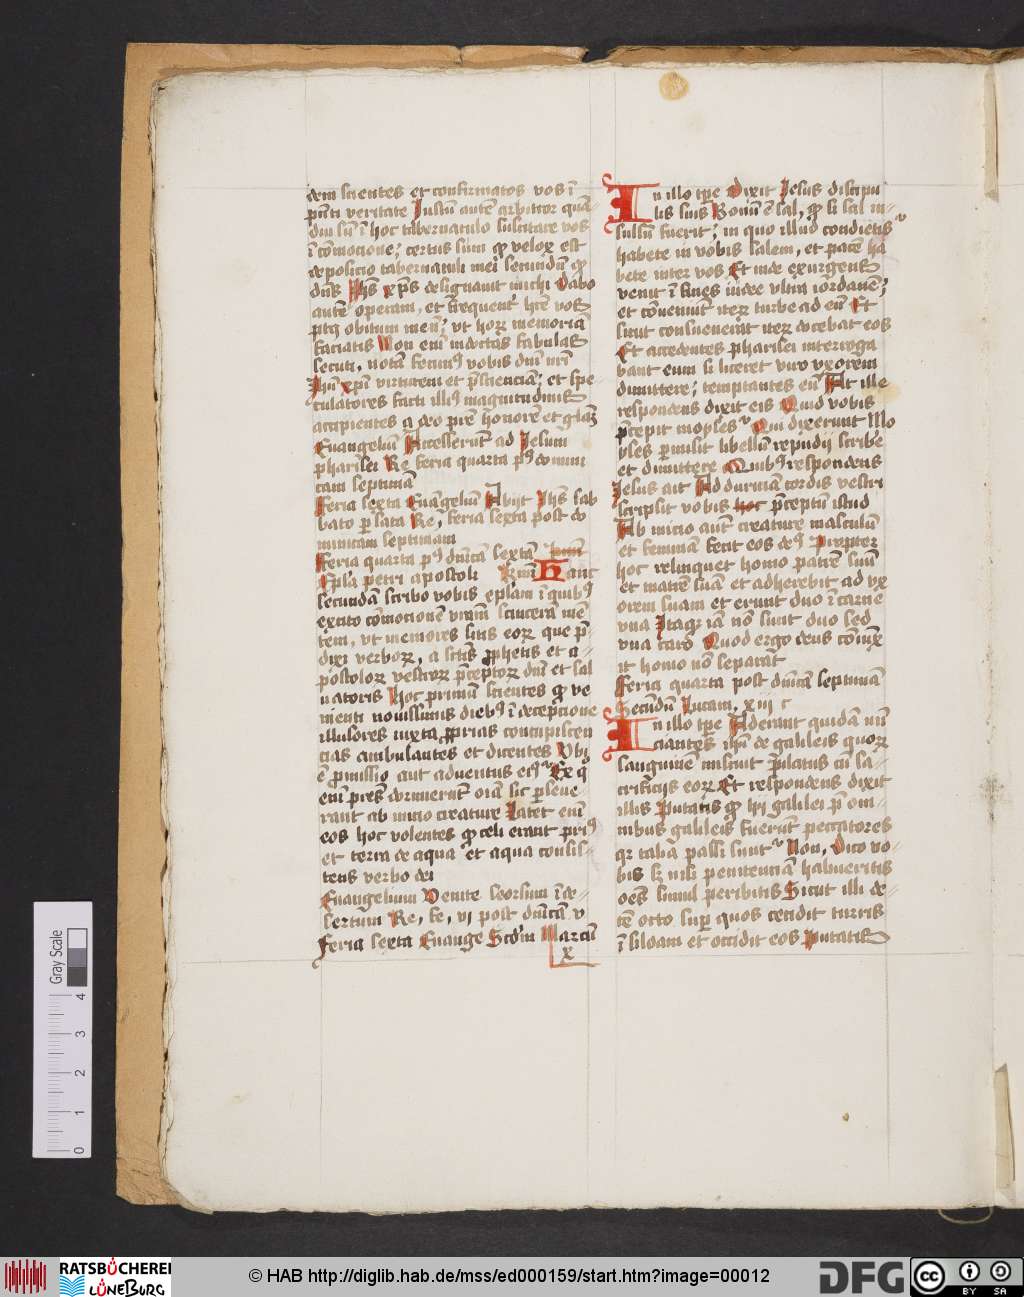 dem scientes et confirmatos vos ī
p̄nti veritate Iustū autē arbitror quā-
diu sū ī hoc tabernaculo suscitare vos
ī cōmocione; certus sum qꝫ velox est
deposicio tabernaculi mei secundū qꝫ
Ihs xp̄s designauit michi Dabo
autē operam, et frequenter hr̄e vos
obitum meū; vt horꝝ memoriā
faciatis Non eni indoctas fabulas
secuti, notā fecimꝰ vobis dn̄i nr̄i
Ihū xpī virtutem et p̄scienciam; et spe
culatores facti illiꝰ magnitudinis
accipientes a deo pr̄e honorē et gl̄iaꝫ
Euangeliū Accesserūt ad Iesum
pharisei Re feria quarta pꝰ domini
cam septimā
Feria sexta Euāgeliū Abijt Ihs sab
bato p̱ sata Re, feria sexta post do
minicam septimam
Feria quarta pꝰ dn̄icā sextā
Ep̄la petri apostoli Hanc
secundā scribo vobis ep̄lam ī quibꝰ
excito cōmocionē vr̄am sinceram mē
tem, vt memores sitis eorꝝ que p̄-
dixi verborꝝ, a sc̄tis ꝓphetis et a-
postolorꝝ vestrorꝝ p̄ceptorꝝ dn̄i et sal
uatoris Hoc primum scientes qꝫ ve
nienti nouissimis diebꝰ ī decepcione
illusores iuxta ꝓprias concupiscen
cias ambulantes et dicentes Vbi
ē ꝓmissio aut aduentus eiꝰ Ex q̄
eni pr̄es dormierūt oīa sic p̱seue
rant ab inicio creature Latet eni
eos hoc volentes qꝫ celi erant priꝰ
et terra de aqua et aqua consis-
tens verbo dei
Euangelium Venite seorsum ī de-
sertum Re, fe, vi post dn̄icā v
Feria sexta Euange Scdm Marcū
x
In illo tp̄e Dixit Iesus discipu
lis suis Bonū ē sal, qꝫ si sal in-
sulsū fuerit; in quo illud condietis
habete in vobis salem, et pacē ha
bete inter vos Et inde exurgens
venit ī fines iudee vltra iordanē;
et cōueniūt iterꝝ turbe ad eū Et
sicut consueuerat iterꝝ docebat eos
Et accedentes pharisei interroga
bant eum si liceret viro vxorem
dimittere; temptantes eū At ille
respondens dixit eis Quid vobis
p̄cepit moyses Qui dixerunt Mo
yses p̱misit libellū repudij scribe
et dimittere Quibꝰ respondens
Iesus ait Ad duriciam cordis vestri
scripsit vobis hoc p̄ceptū istud
Ab inicio aut̄ creature masculū
et feminam fecit eos deꝰ Propter
hoc relinquet homo patrē suū
et matrē suā et adherebit ad vx
orem suam et erunt duo ī carne
vna Itaqꝫ iā nō sunt duo sed
vna caro Quod ergo deus coniūx
it homo nō separat̄
Feria quarta post dn̄icā septimā
Secūdū Lucam, xiij c
In illo tp̄e Aderant quidā nū
ciantes ihū de galileis quorꝝ
sanguinē miscuit pilatus cū sa-
crificijs eorꝝ Et respondens dixit
illis Putatis qꝫ hij galilei p̄ om-
nibus galileis fuerūt peccatores
qꝫ talia passi sunt Non, Dico vo-
bis sꝫ nisi penitenciā habueritis
oēs simul peribitis Sicut illi de-
cē octo sup̱ quos cecidit turris
ī siloam et occidit eos Putatis
Gray Scale
4
3
2
1
0
RATSBÜCHEREI
LÜNEBURG
© HAB http://diglib.hab.de/mss/ed000159/start.htm?image=00012
DFG
cc
BY SA